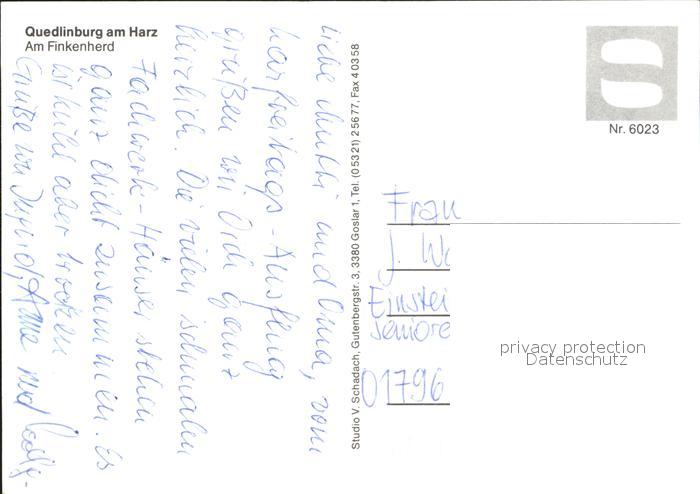 Quedlinburg am Harz
Am Finkenherd
Liebe Mutti und Oma, vom
Karfreitags-Ausflug
grüßen wir Dich ganz
herzlich. Die vielen schmalen
Fachwerk-Häuser stehen
ganz dicht zusammen. Es
ist kühl aber trocken
Grüße von Anne und
Studio V. Schadach, Gutenbergstr. 3, 3380 Goslar 1, Tel. (05321) 25677, Fax 40358
Nr. 6023
Frau
J. W
Einstei
Seniore
01796
privacy protection
Datenschutz